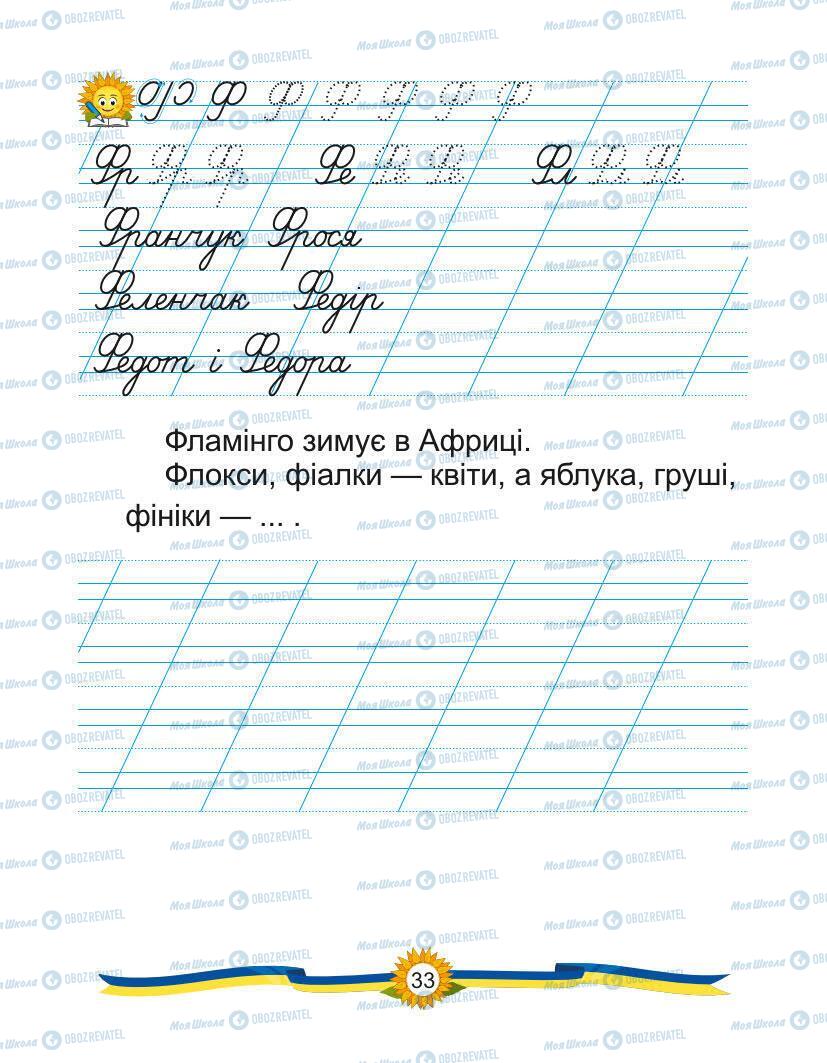 Ф Ф Ф Ф Ф Ф
Фр Фр Фр Фе Фе Фе Фл Фл Фл
Франчук Фрося
Феленчак Федір
Федот і Федора
Фламінго зимує в Африці.
Флокси, фіалки — квіти, а яблука, груші,
фініки — ... .
33
МояШкола OBOZREVATEL